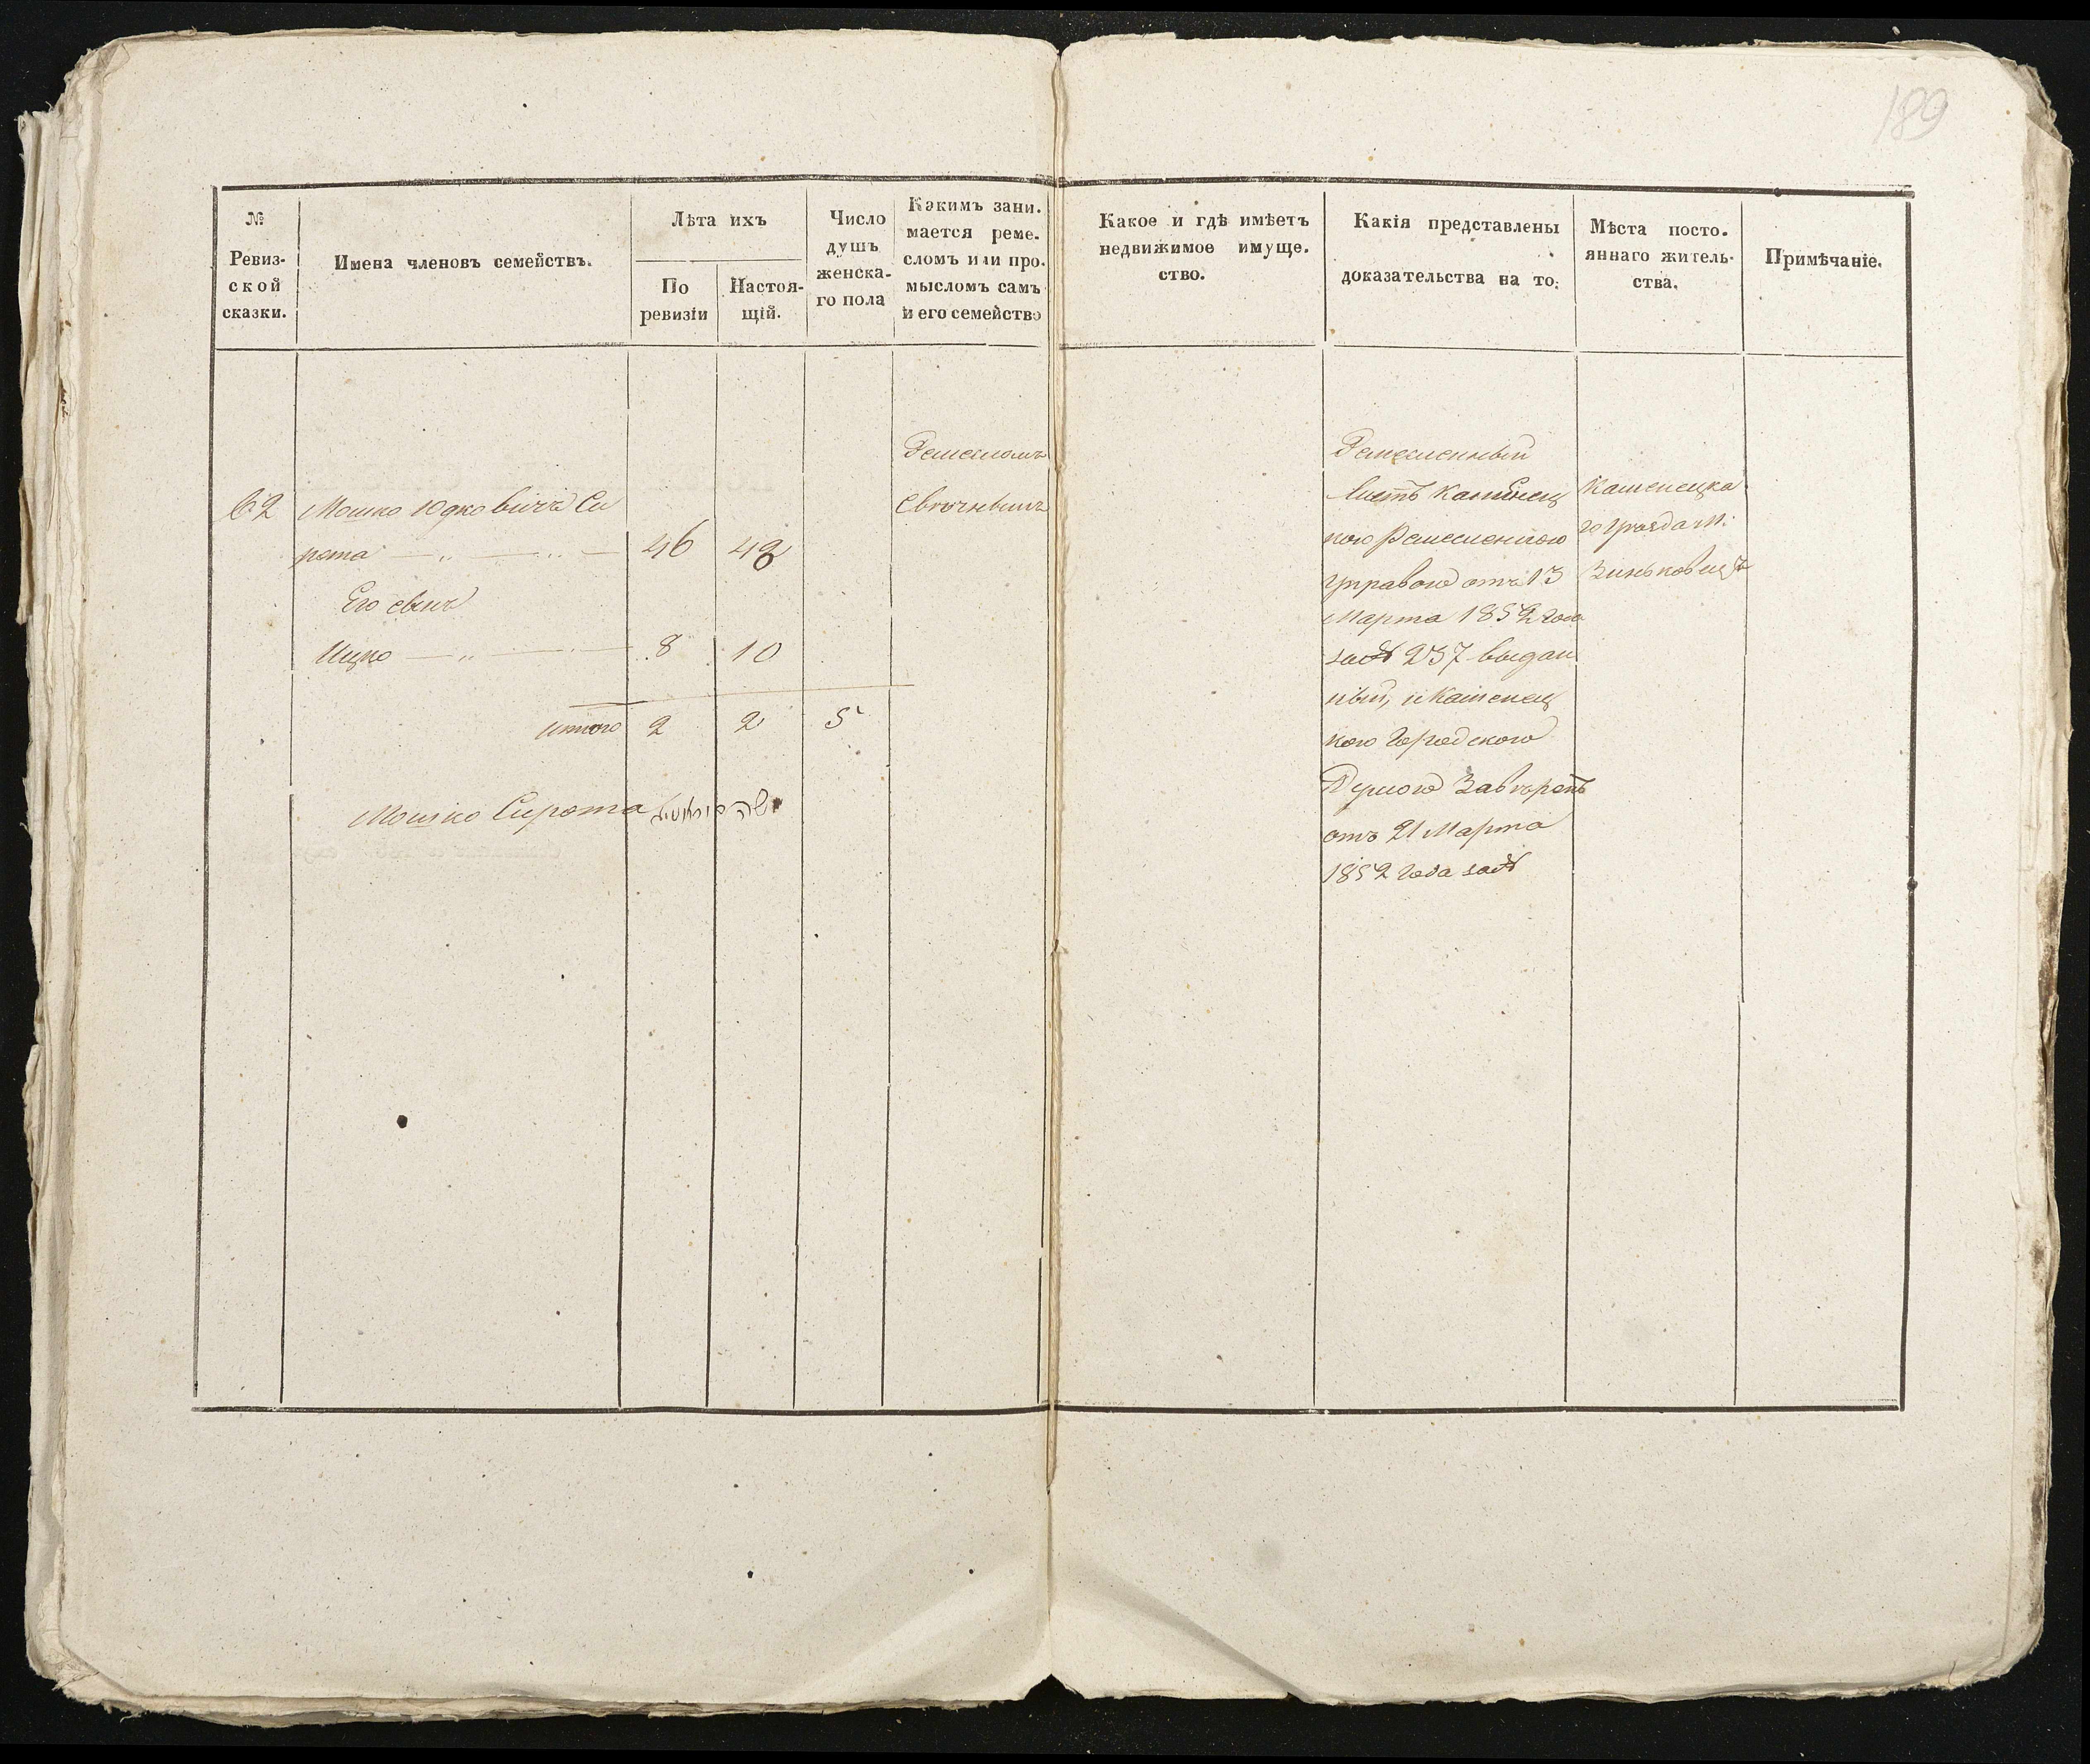 189
№
Ревиз-
ской
сказки.
Имена членовъ семействъ.
Лѣта ихъ
По
ревизіи
Настоя-
щій.
Число
душъ
женска-
го пола
Какимъ зани-
мается реме-
сломъ или про-
мысломъ самъ
и его семейство
Какое и гдѣ имѣетъ
недвижимое имуще-
ство.
Какія представлены
доказательства на то:
Мѣста посто-
яннаго житель-
ства.
Примѣчаніе.
62 Мошко Юдковичъ Си
рота 46 48
Его сынъ
Ицко 8 10
итого 2 2 5
Мошко Сирота
Ремесломъ
Свѣчнымъ
Ремесленный
листъ Каменец
кою Ремесленною
управою отъ 13
Марта 1852 года
за № 237 выдан
ный, и Каменец
кою Городскою
Думою Завѣренъ
отъ 21 Марта
1852 года за №
Каменецка
го уѣзда м.
Зиньковецъ